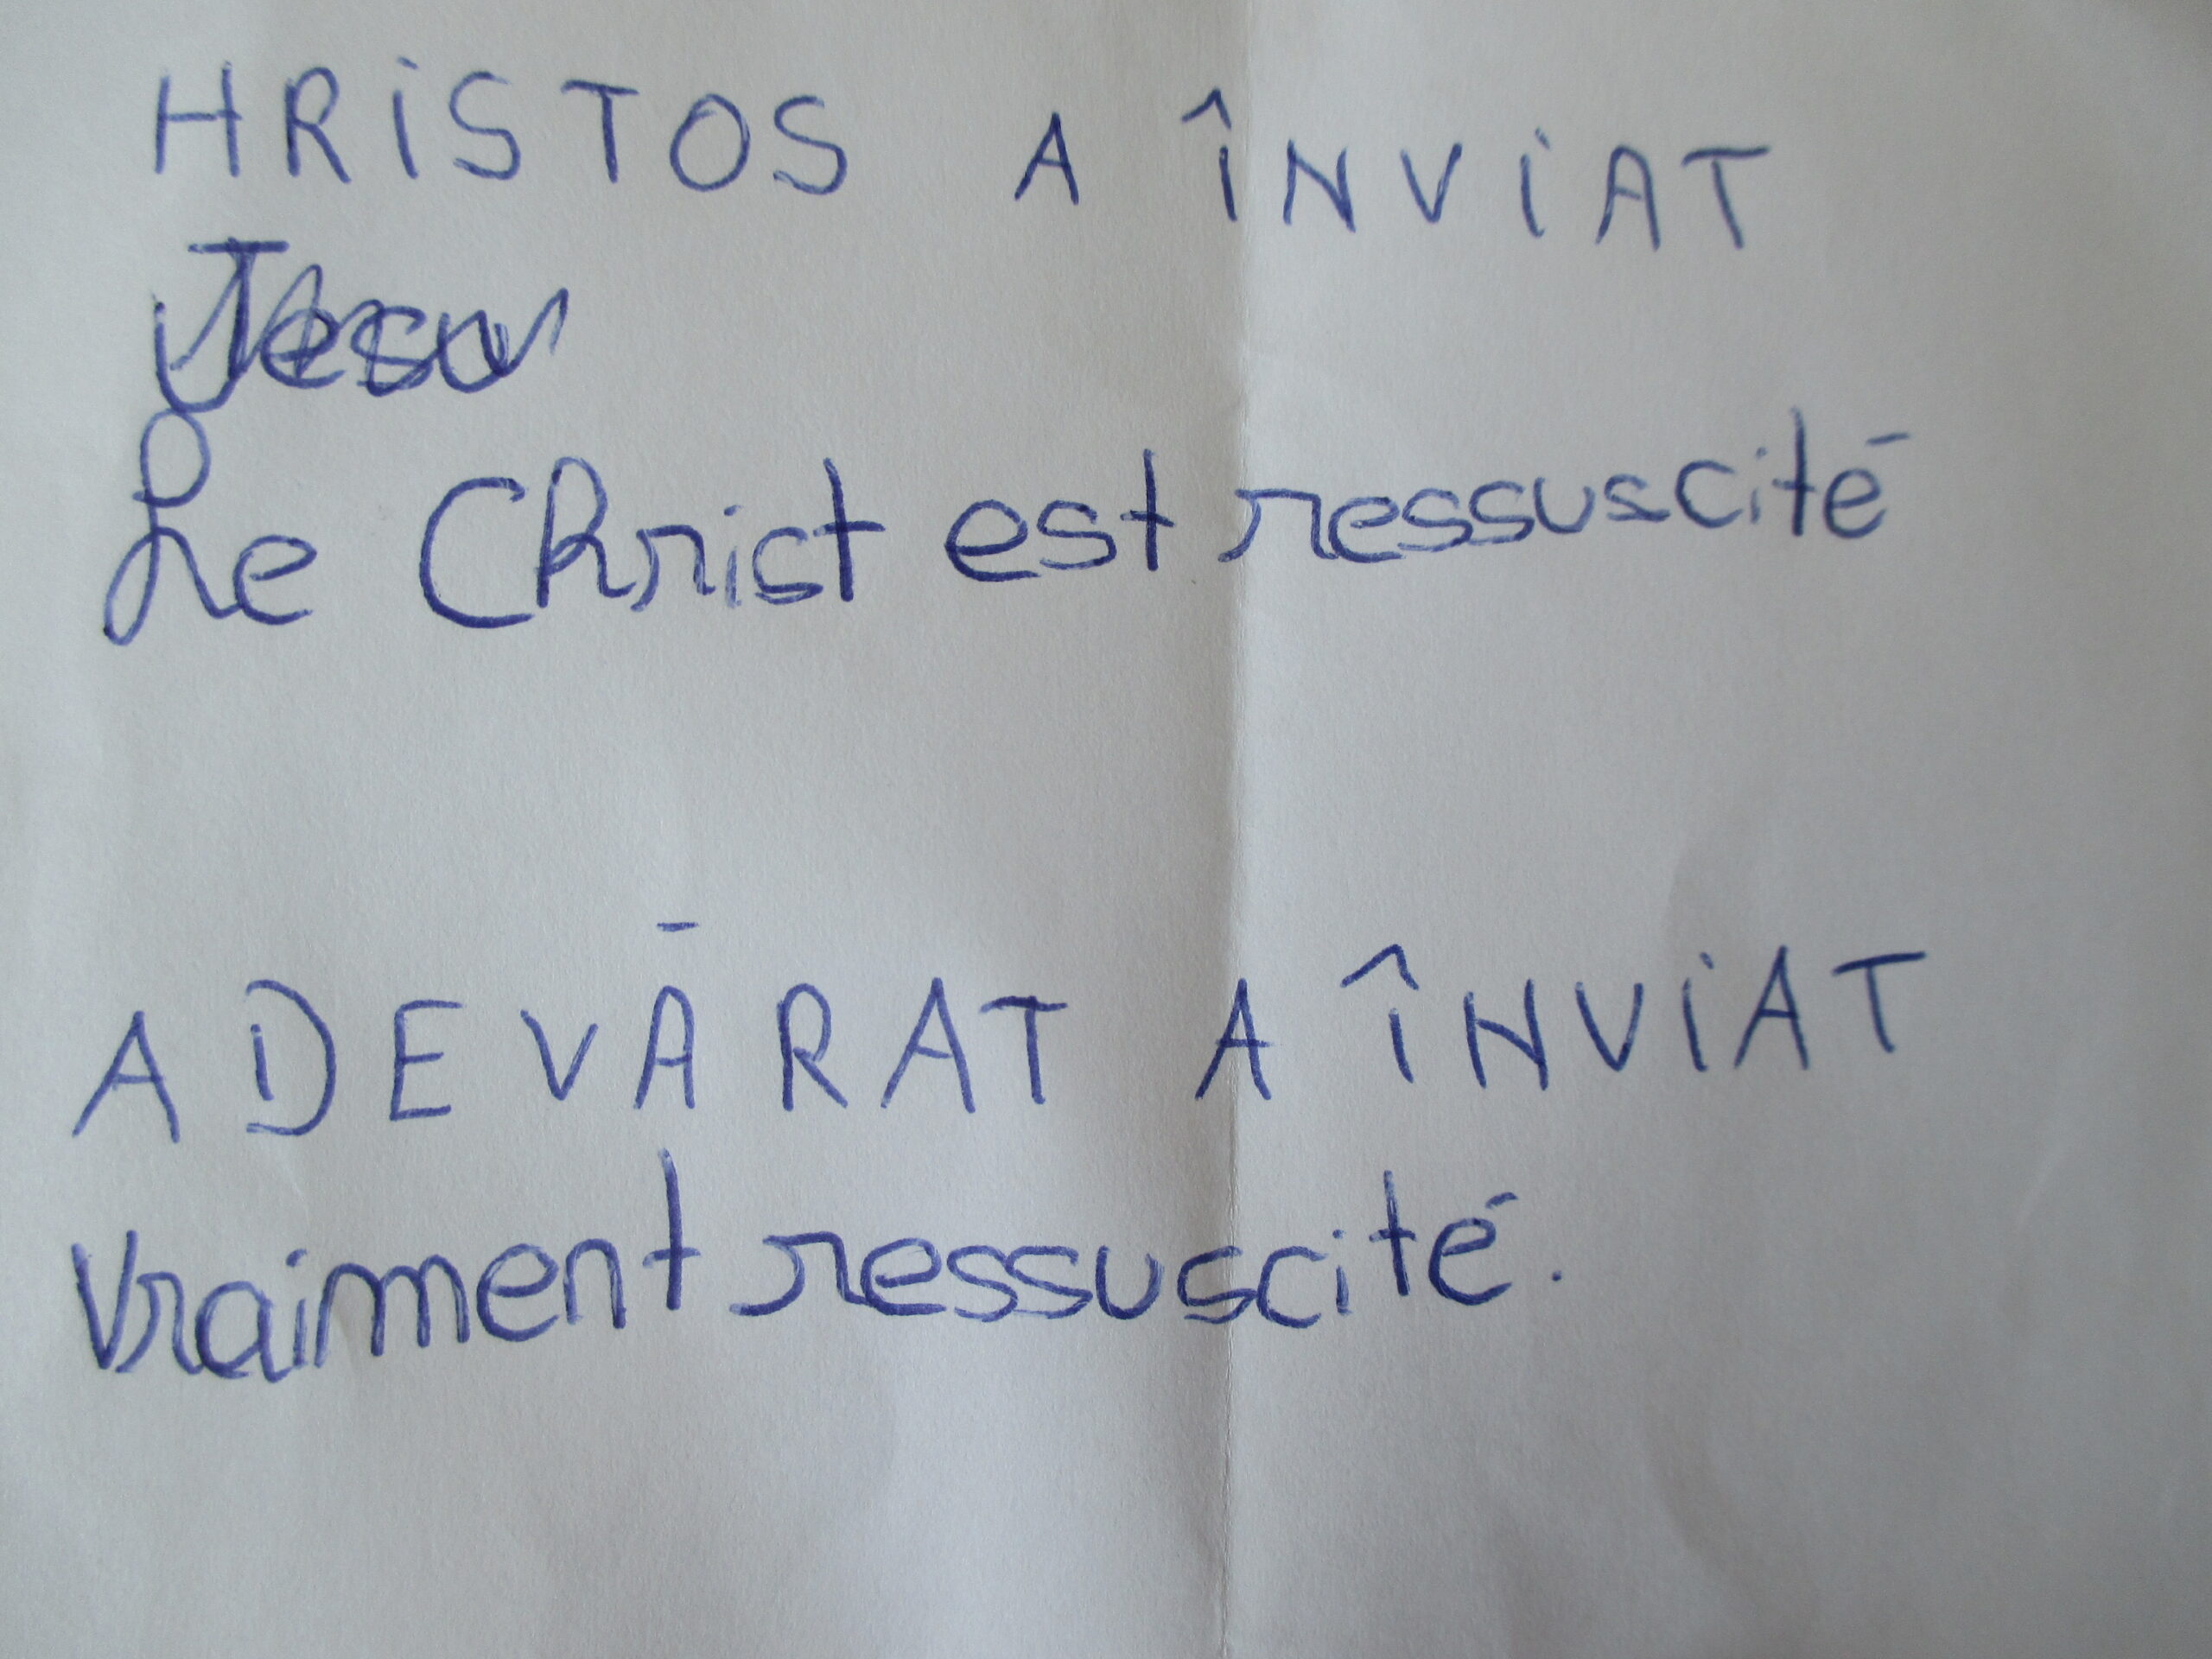 HRiSTOS A ÎNViAT
Le Christ est ressuscité
ADEVĀRAT A ÎNViAT
Vraiment ressuscité.